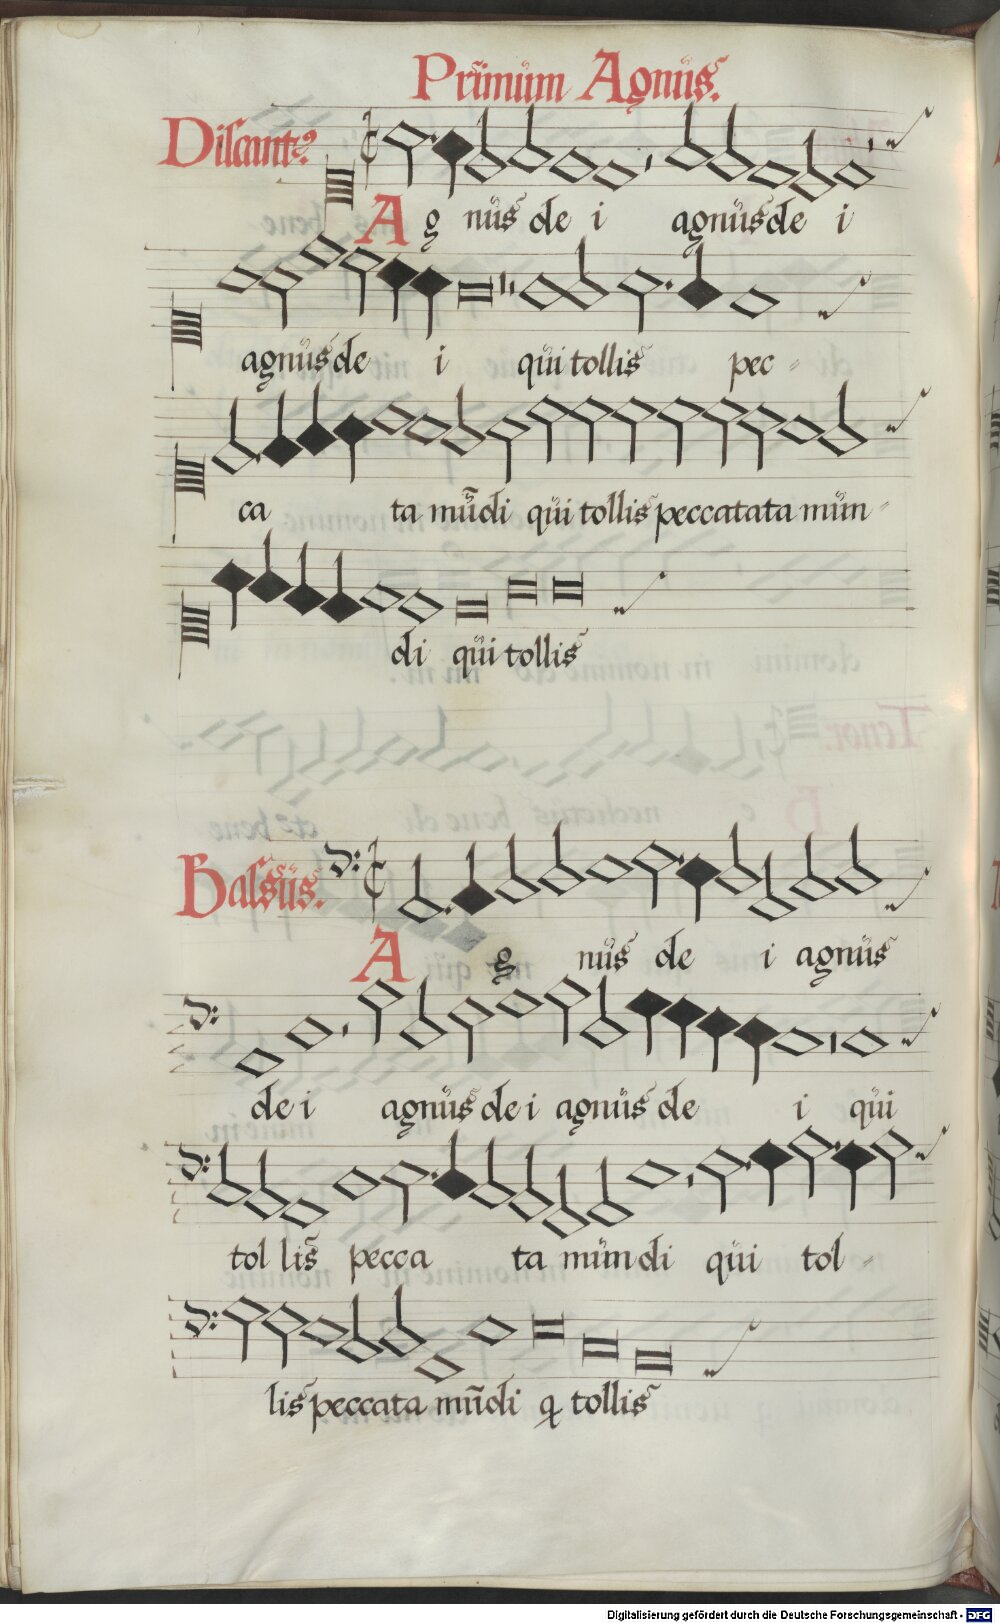 Primum Agnus.
Discantꝰ
A g nus de i agnus de i
agnus de i qui tollis pec-
ca ta mūdi qui tollis peccatata mun-
di qui tollis
Bassus.
A g nus de i agnus
de i agnus de i agnus de i qui
tol lis pecca ta mundi qui tol-
lis peccata mūdi q tollis
Digitalisierung gefördert durch die Deutsche Forschungsgemeinschaft - DFG